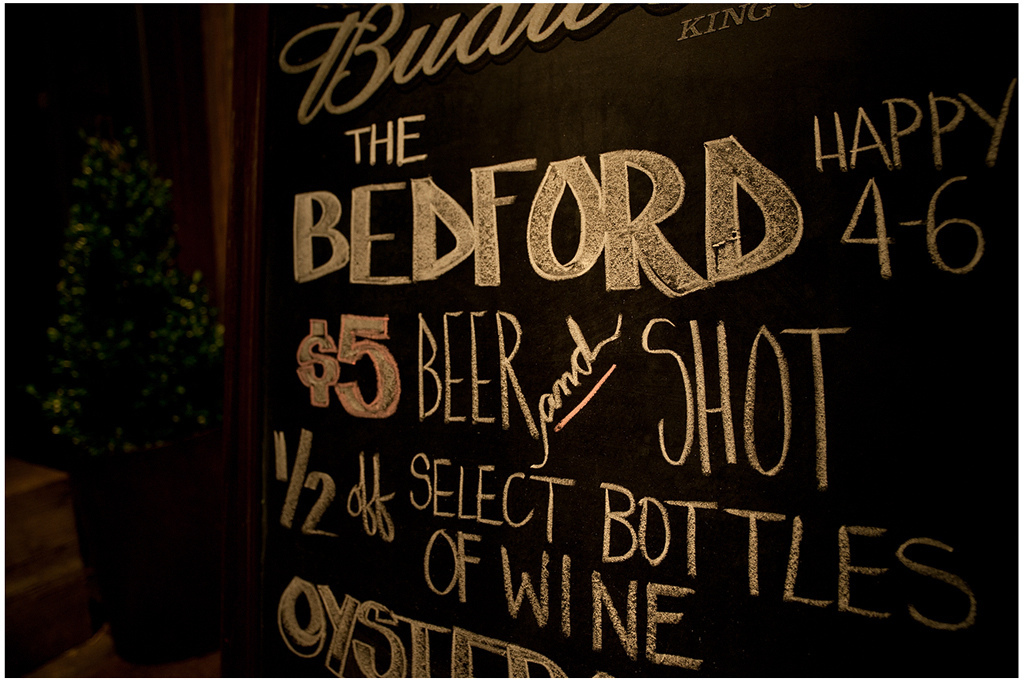 KING
THE
BEDFORD
HAPPY
4-6
$5 BEER and SHOT
1/2 off SELECT BOTTLES
OF WINE